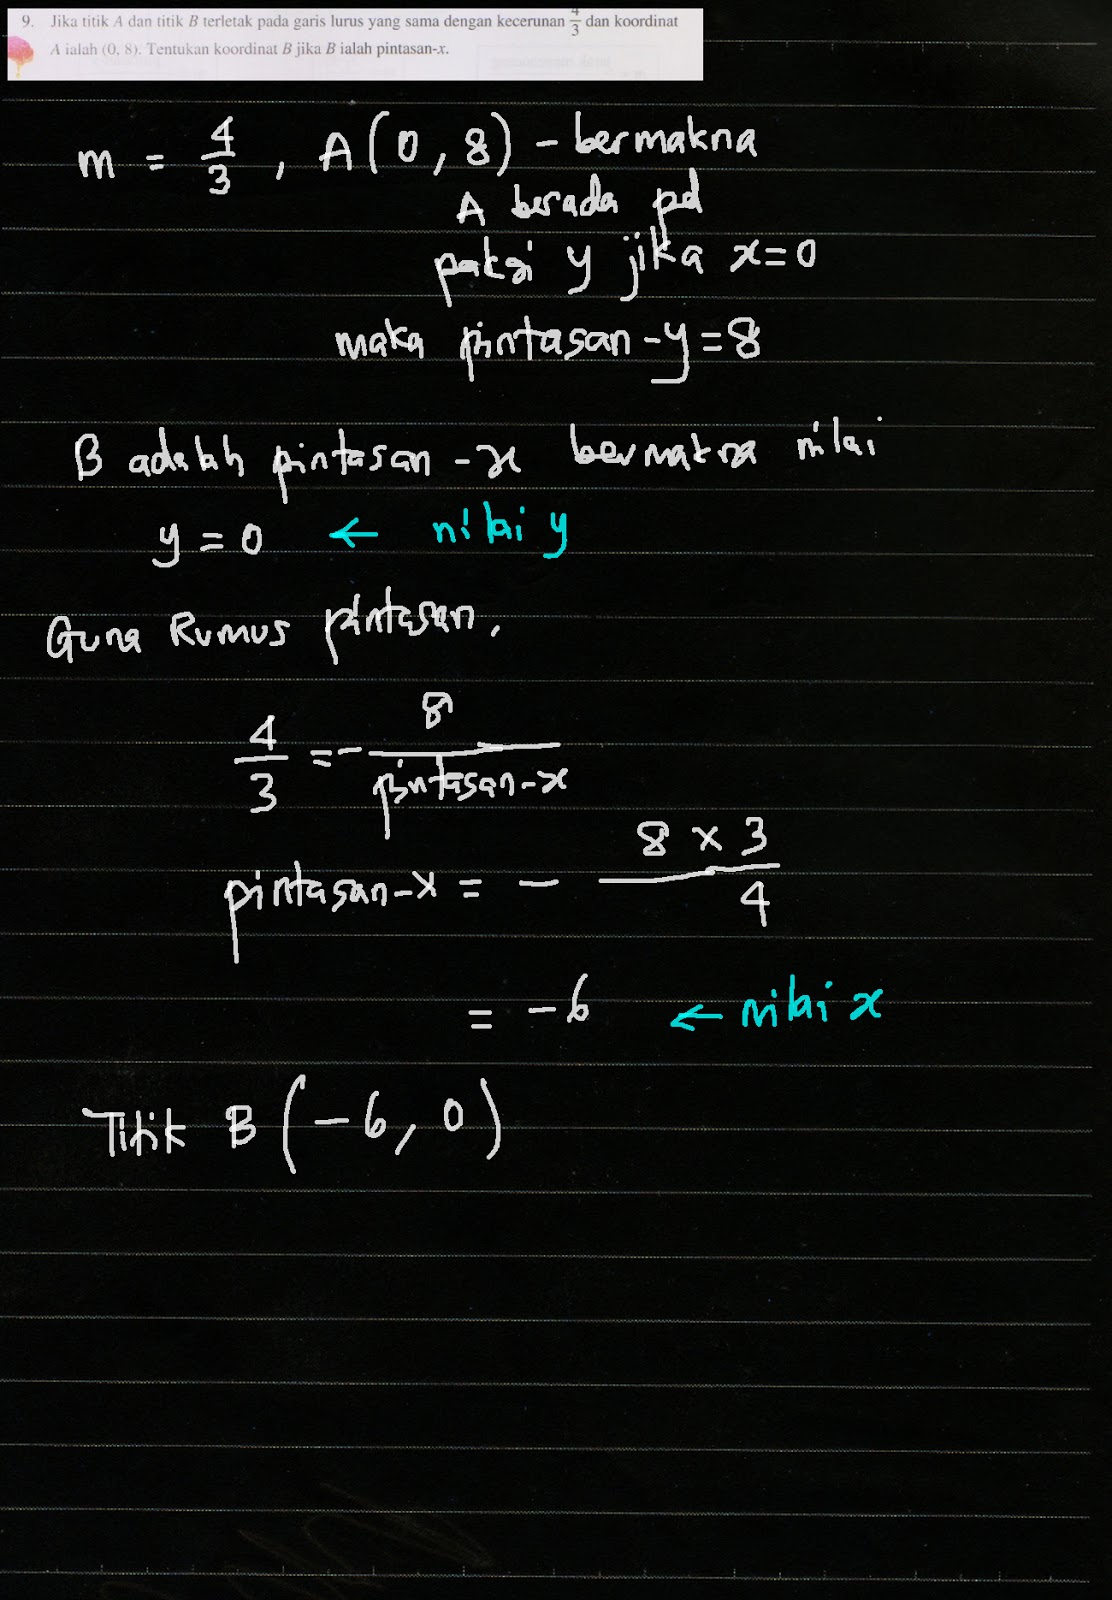 9. Jika titik A dan titik B terletak pada garis lurus yang sama dengan kecerunan 4/3 dan koordinat
A ialah (0, 8). Tentukan koordinat B jika B ialah pintasan-x.
m = 4/3 , A(0, 8) - bermakna
A berada pd
paksi y jika x=0
maka pintasan-y=8
B adalah pintasan-x bermakna nilai
y = 0 ← nilai y
Guna Rumus pintasan,
4/3 = - 8/pintasan-x
pintasan-x = - 8 x 3/4
= -6 ← nilai x
Titik B (-6, 0)